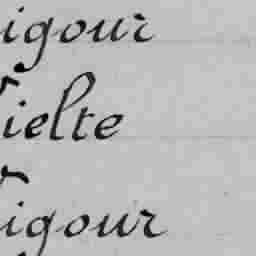 igour
ielte
igour